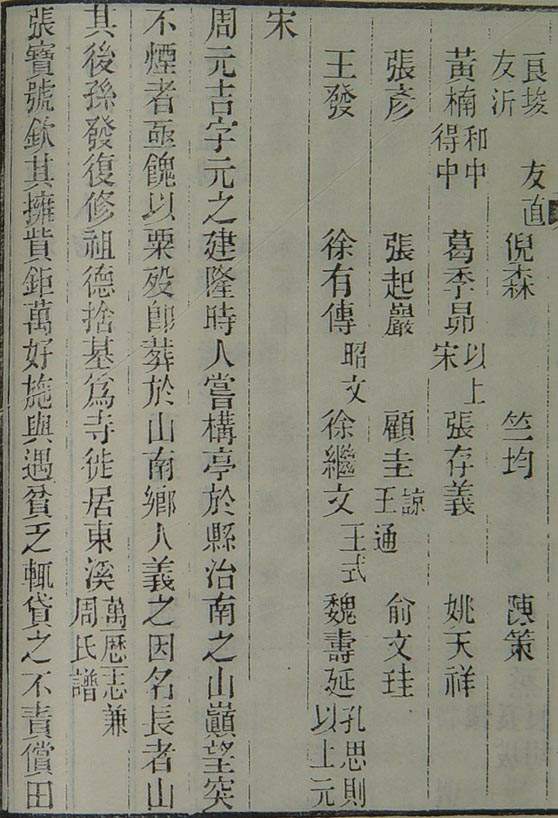 良埈 友沂 友直 倪森 竺均 陳策
黃楠 和中 得中 葛季昴 以上宋 張存義 姚天祥
張彦 張起巖 顧圭 諒 王通 俞文珪
王發 徐有傳 昭文 徐繼文 王式 魏壽延 孔思則 以上元
宋
周元吉字元之建隆時人嘗構亭於縣治南之山巔望突
不煙者亟餽以粟歿卽葬於山南鄉人義之因名長者山
其後孫發復修祖德捨基爲寺徙居東溪萬厯志兼周氏譜
張寶號欽其擁貲鉅萬好施與遇貧乏輒貸之不責償田